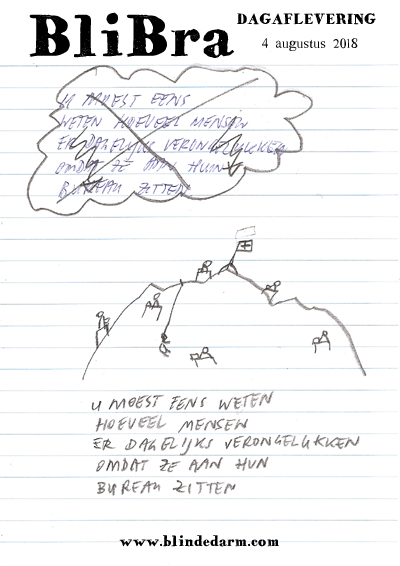 BliBra
DAGAFLEVERING
4 augustus 2018
U MOEST EENS
WETEN HOEVEEL MENSEN
ER DAGELIJKS VERONGELUKKEN
OMDAT ZE AAN HUN
BUREAU ZITTEN
U MOEST EENS WETEN
HOEVEEL MENSEN
ER DAGELIJKS VERONGELUKKEN
OMDAT ZE AAN HUN
BUREAU ZITTEN
www.blindedarm.com